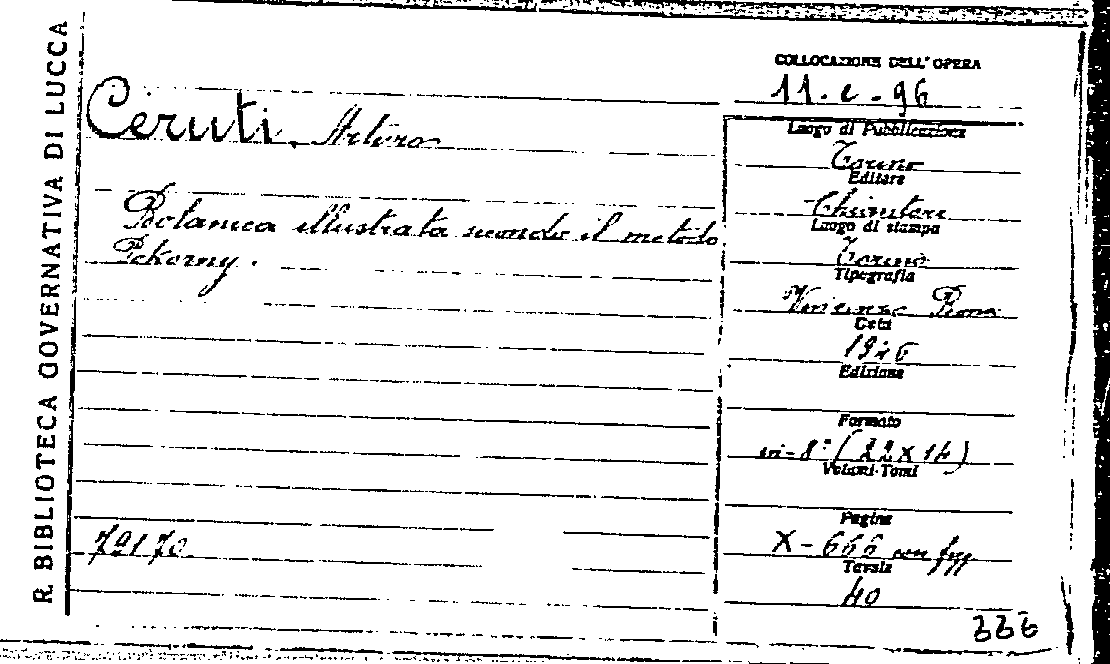 R. BIBLIOTECA GOVERNATIVA DI LUCCA
COLLOCAZIONE DELL'OPERA
11. e. 96
Ceruti, Arturo
Luogo di Pubblicazione
Torino
Editore
Botanica illustrata secondo il metodo
Pokorny.
Chiantore
Luogo di stampa
Torino
Tipografia
Vincenzo Bona
Data
Edizione
Formato
in-8° (22 x 14)
Volumi-Tomi
Pagine
X-666 con fgg
Tavole
40
79170
336